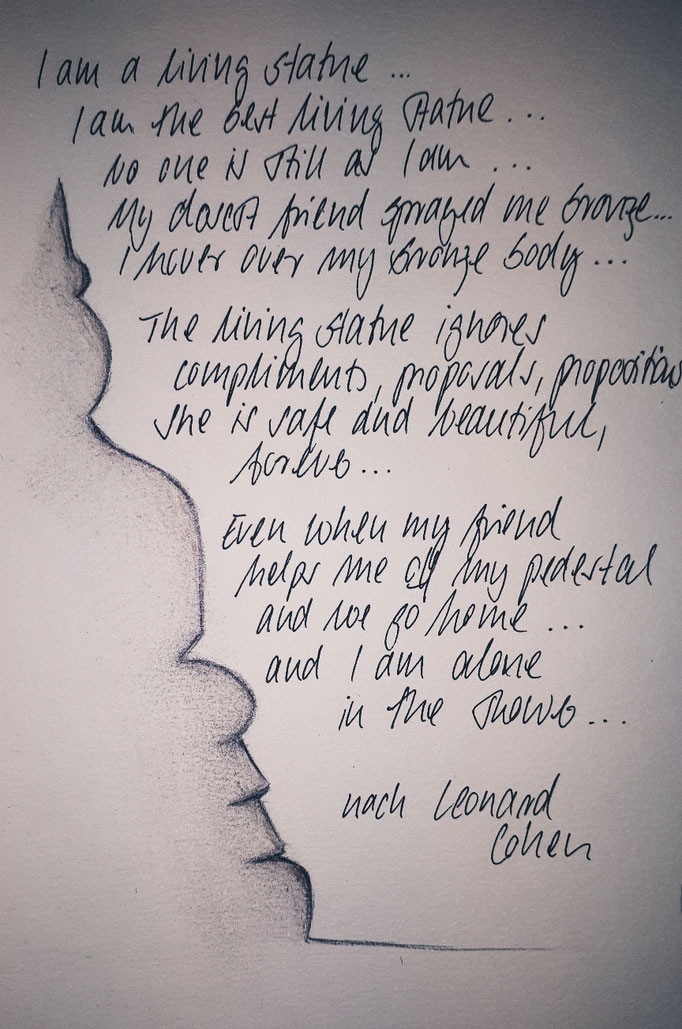 I am a living statue ...
I am the best living statue ...
No one is still as I am ...
My closest friend sprayed me bronze...
I hover over my bronze body ...
The living statue ignores
compliments, proposals, propositions
she is safe and beautiful,
forever ...
Even when my friend
helps me off my pedestal
and we go home ...
and I am alone
in the shower ...
nach Leonard
Cohen